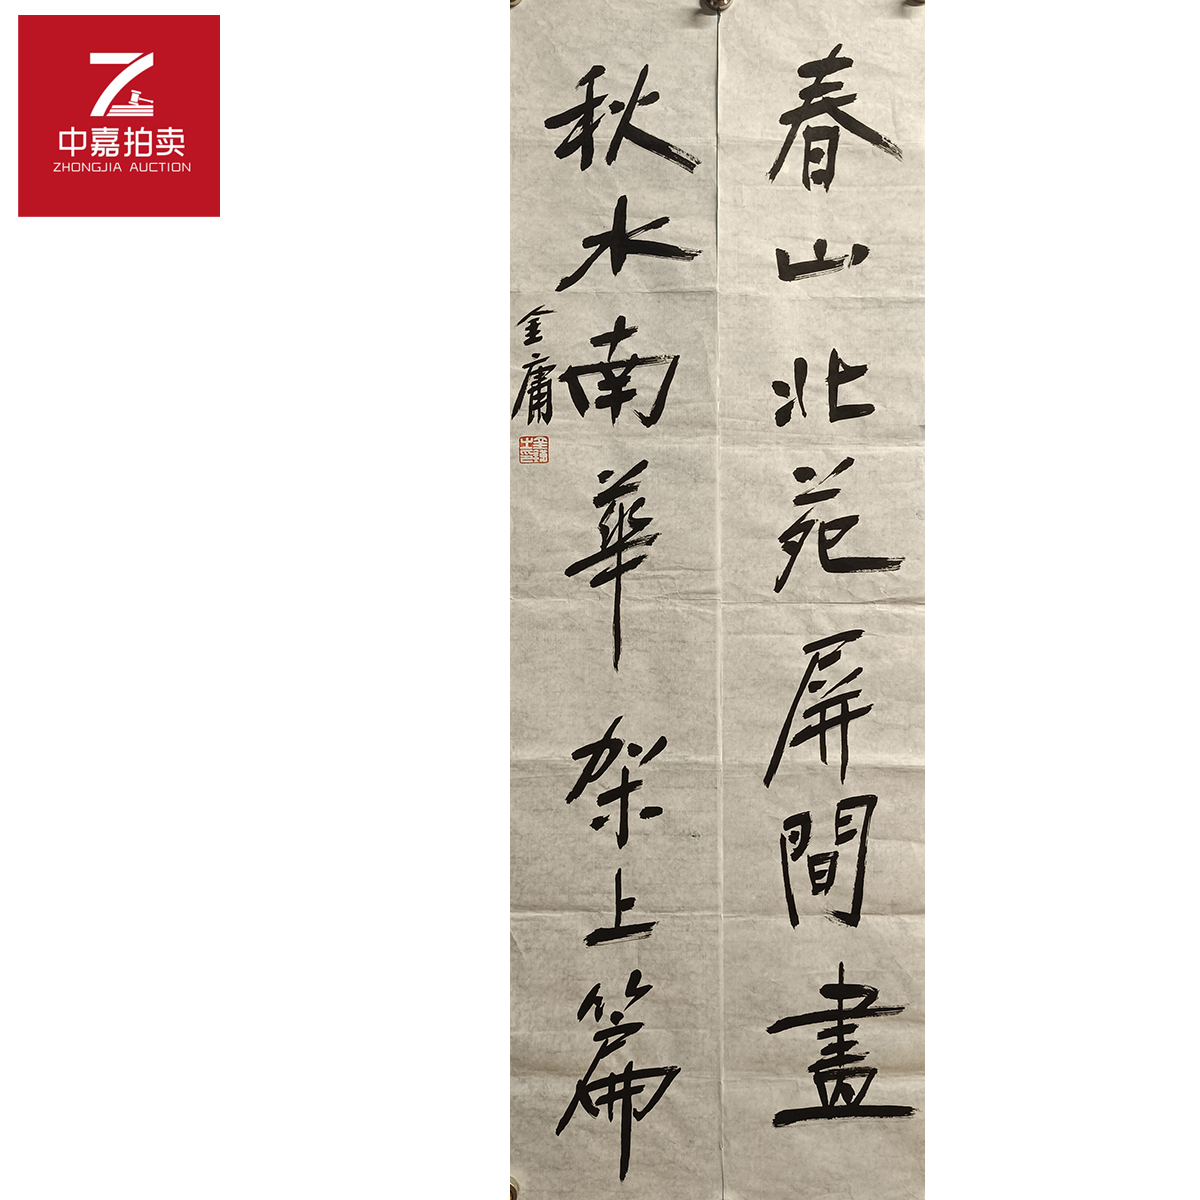 中嘉拍卖
ZHONGJIA AUCTION
春山北苑屏間畫
秋水南華架上篇
金庸